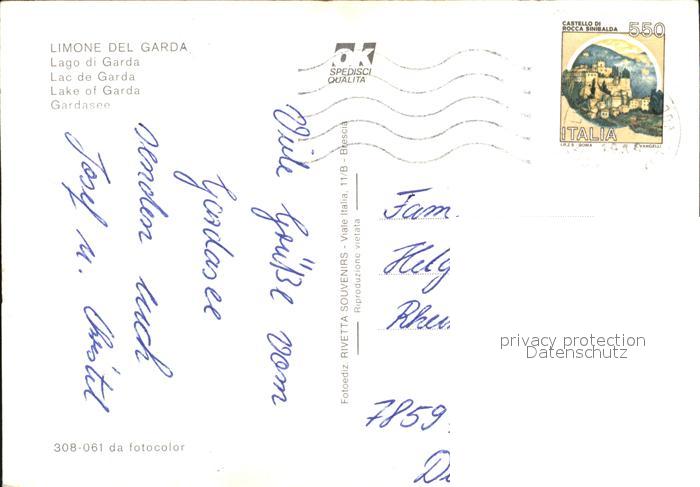 LIMONE DEL GARDA
Lago di Garda
Lac de Garda
Lake of Garda
Gardasee
ok
SPEDISCI
QUALITÀ
CASTELLO DI
ROCCA SINIBALDA
550
ITALIA
I.P.Z.S. ROMA E. VANGELLI
Viele Grüße vom
Gardasee
senden Euch
Josef u. Christl
Fotoediz. RIVETTA SOUVENIRS - Viale Italia, 11/B - Brescia
Riproduzione vietata
Fam.
Helg
7859
privacy protection
Datenschutz
308-061 da fotocolor